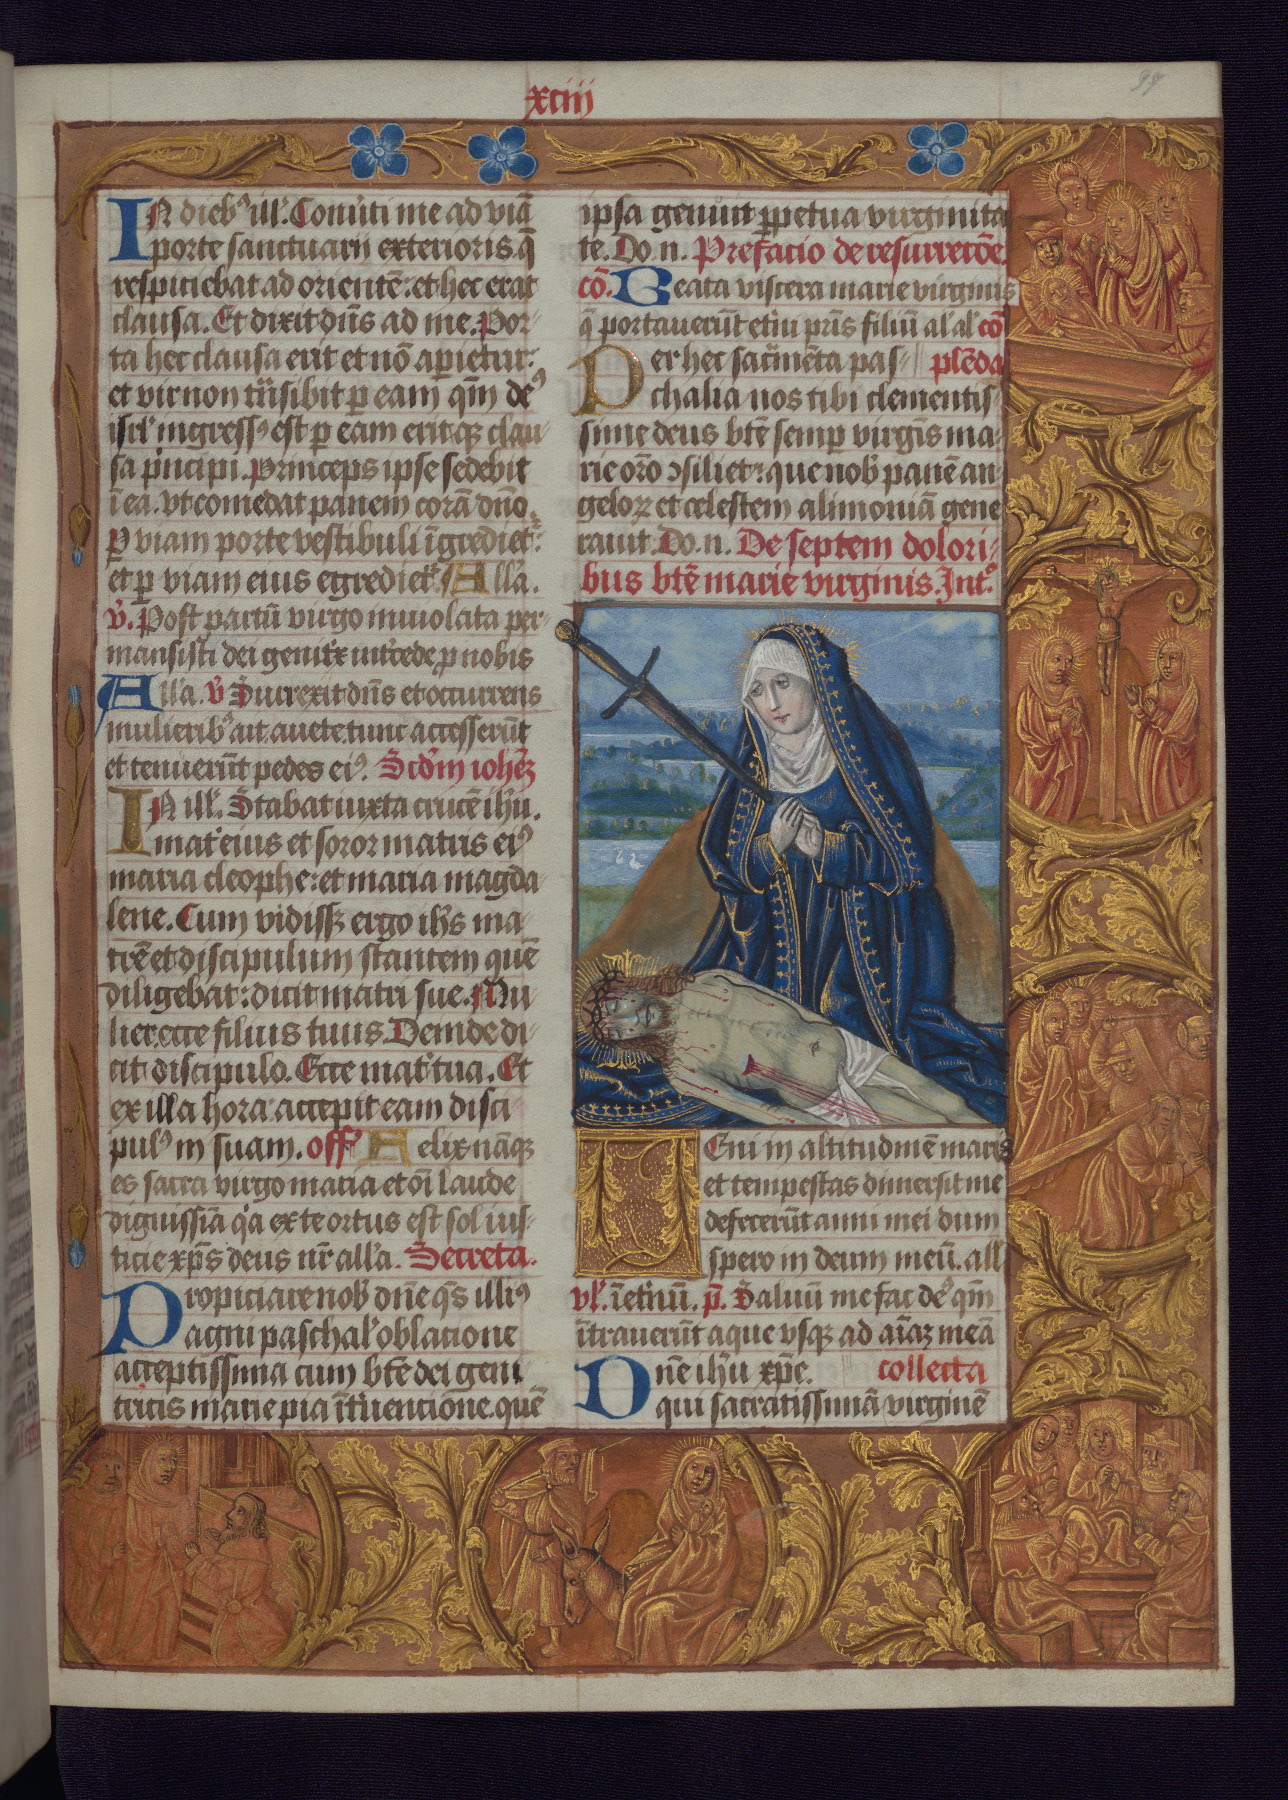 xciii
99
IN dieb⁹ ill'. Conūti me ad viā
porte sanctuarii exterioris. q̄
respiciebat ad orientē: et hec erat
clausa. Et dixit dn̄s ad me. Por⸗
ta hec clausa erit et nō apietur:
et vir non trāsibit p eam qm̄ de⁹
isrl' ingress⁹ est p eam eritqꝫ clau⸗
sa p̄ncipi. Princeps ipse sedebit
ī ea. vt comedat panem corā dn̄o.
p viam porte vestibuli īgrediet᷑:
et p viam eius egrediet᷑. Alla.
v̄. Post partū virgo inviolata per⸗
mansisti dei genitx̄ int̄cede p nobis
Alla. v̄ Surrexit dn̄s et occurrens
mulierib⁹ ait. avete. tunc accesserūt
et tenuerūt pedes ei⁹. Scd̄m ioheꝫ
IN ill'. Stabat iuxta crucē ihū.
mat̄ eius et soror matris ei⁹
maria cleophe: et maria magda⸗
lene. Cum vidissꝫ ergo ihs̄ ma⸗
trē et discipulum stantem quē
diligebat: dicit matri sue. Mu⸗
lier. ecce filius tuus. Deinde di⸗
cit discipulo. Ecce mat̄ tua. Et
ex illa hora accepit eam disci
pul⁹ in suam. off' Felix nāqꝫ
es sacra virgo maria et oī laude
dignissīa q̄a ex te ortus est sol ius⸗
ticie xp̄s deus nr̄ all'a. Secreta.
Propiciare nob' dn̄e qs̄ illi⁹
agni paschal' oblatione
acceptissima cum btē dei geni
tricis marie pia īt̄uencione. quē
ipsa genuit ꝑpetua virginita
te. Do. n. Prefacio de resurrectōe.
cō. Beata viscera marie virginis
q̄ portaverūt et̄ni pris̄ filiū al' al' cō
Per hec sac̄mēta pas⸗ plēda
chalia nos tibi clementis⸗
sime deus btē semp virgīs ma⸗
rie or̄o ↄsiliet᷑: que nob' panē an⸗
geloꝝ et celestem alimoniā gene
ravit. Do. n. De septem dolori⸗
bus btē marie virginis. Int⁹.
Veni in altitudinē maris
et tempestas dimersit me
defecerūt anni mei dum
spero in deum meū. all'
vl' īet̄nū. p̄. Salvū me fac de⁹ qm̄
ītraverūt aque vsqꝫ ad aīaꝫ meā
Dn̄e ihū xp̄e. collecta
qui sacratissimā virginē